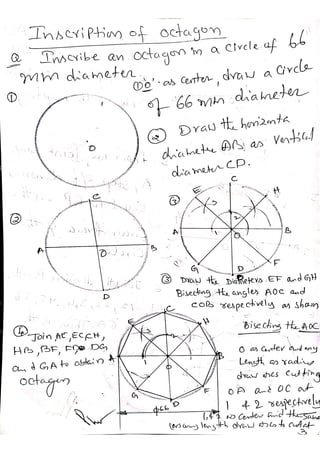 Inscription of octagon
Q Inscribe an octagon in a circle of 66
mm diameter.
① 'O' as center, draw a circle
of 66 mm diameter
①
O
② Draw the horizontal
diameter AB, as vertical
diameter CD.
②
C
A O B
D
③
C
E H
1 2
A O B
G F
D
③ Draw the Diameters EF and GH
Bisecting the angles AOC and
COB respectively as shown
④ Join AE, EC, CH,
HB, BF, FD, DG
and GA to obtain
octagon
C
E H
A B
G F
D
φ66
Bisecting the AOC
O as center and any
length as radius
draw arcs cutting
OA and OC at
1 & 2 respectively
1, & 2 as center and the same
(or) any length draw arcs to cut at
3